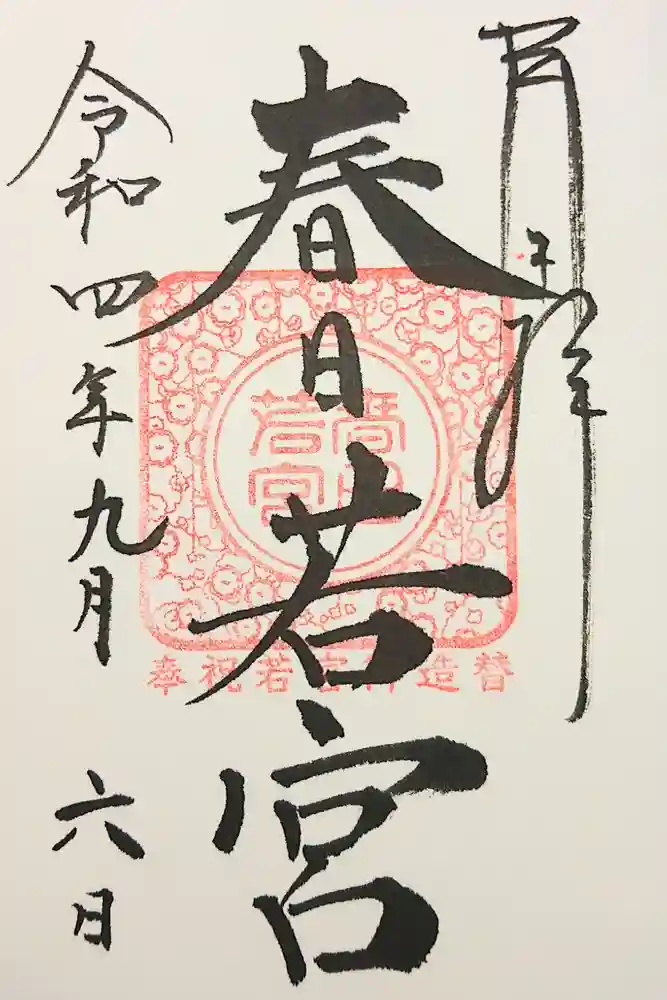 奉拝
春日若宮
令和四年九月六日
春日
若宮
奉祝若宮御造替